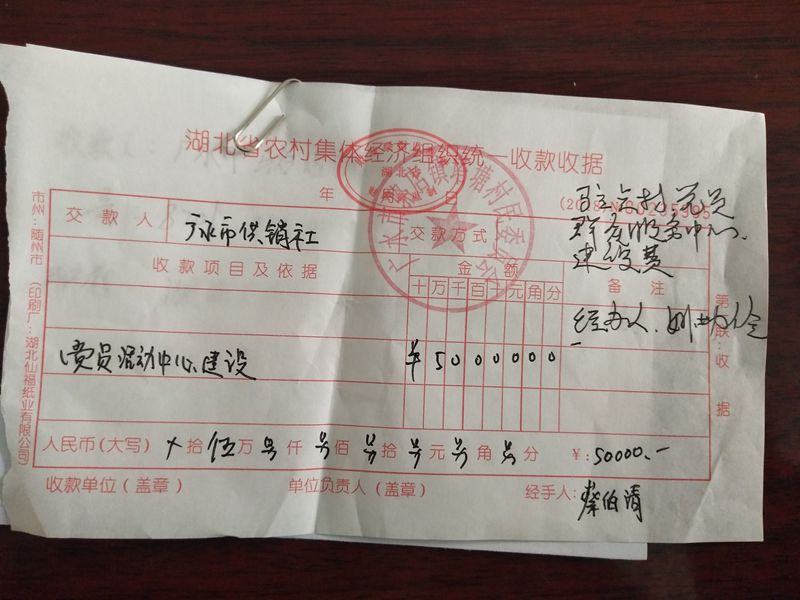 湖北省农村集体经济组织统一收款收据
年 月 日
交款人 广水市供销社 交款方式
收款项目及依据 金额 备注
十万千百十元角分
党员活动中心建设 ¥5000000
群众服务中心
建设费
经办人
人民币(大写) 拾伍万 仟 佰 拾 元 角 分 ¥:50000.-
收款单位(盖章) 单位负责人(盖章) 经手人: 蔡伯清
市州:随州市
(印刷厂:湖北仙福纸业有限公司)
第 联:收据
塘村民委员会